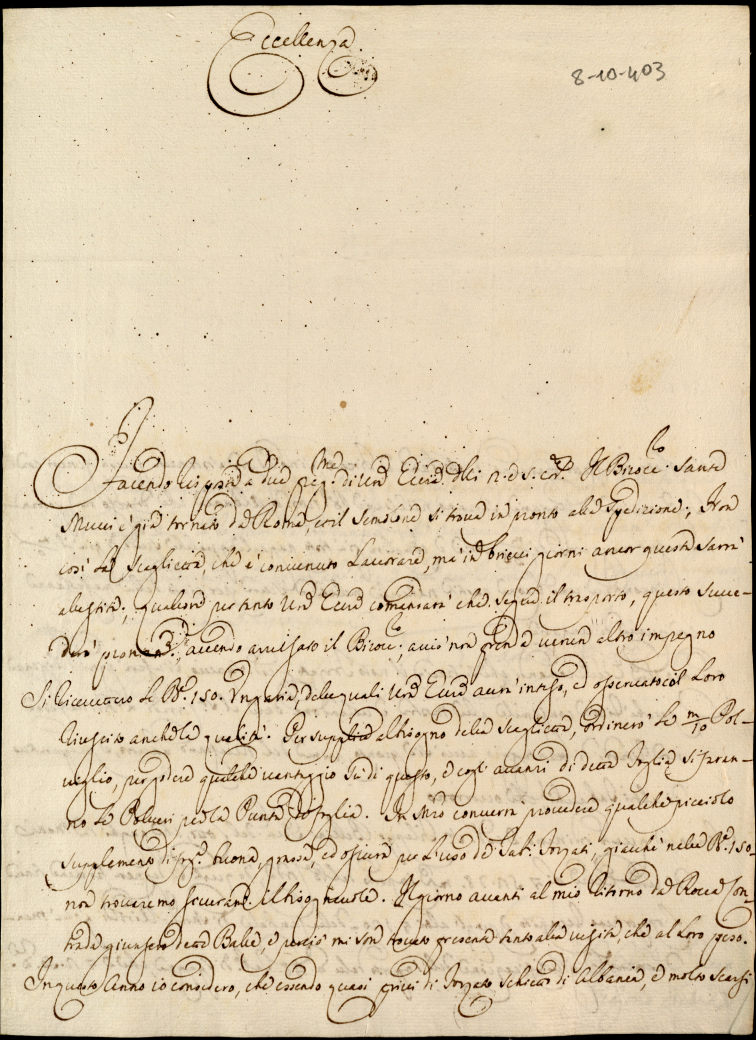 Eccellenza
8-10-403
Facendo risposta a due di Vra Eccza delli n. d. s. Il Birocc.o Sante
Mucci è già tornato da Roma, con il Semolone si trova in pronto alla Spedizione; Non
così la Scaglietta che è convenuto Lavorare, mà in brievi giorni ancor questa sarrà
allestita; qualora per tanto Vra Eccza comandarà che segua il trasporto, questo succe-
derà avendo avvisato il Birocc.o; acciò non prenda verun altro impegno
Si riceuettero le B.e 150. Ungaria, delle quali Vra Eccza aurà inteso, ed osservato col Loro
riuscito anche la qualità. Per supplire al bisogno della Scaglietta, ordinerò le m/10 Pol-
veglio, per poter qualche vantaggio Sù di questo, e cogli avanzi di detta foglia si faran-
no le Polveri per la Punta di foglia. In converrà provedere qualche picciolo
supplemento di buona, grossa, ed oscura per L'uso de' Tab. Forzati, giacchè nelle B.e 150.
non trovaremo sceverare il bisognevole. Il giorno avanti al mio ritorno da Rocca Con-
trada giunsero dette Balle, e perciò mi son trovato presente tanto alla visita, che al Loro peso.
In questo Anno io considero, che essendo quasi privi di Forzato schietto di Albania, e molto scarsi